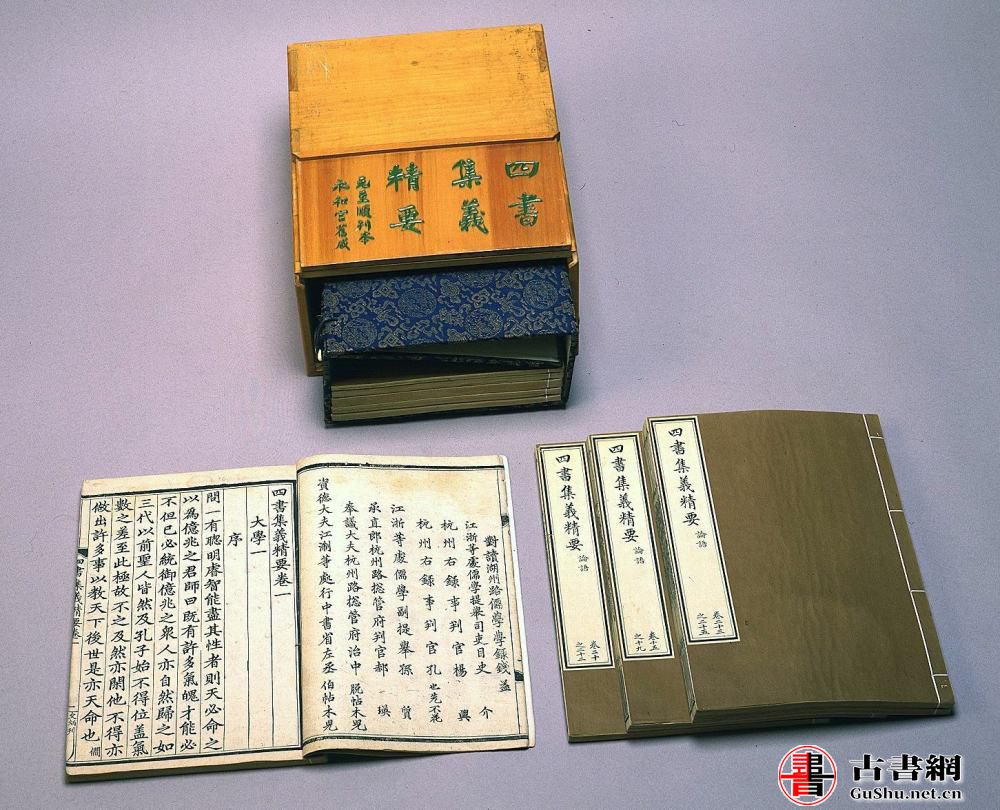 四書
集義
精要
元至順刊本
永和宮舊藏
對讀湖州路儒學學錄錢益
江浙等處儒學提舉司吏目史介
杭州右錄事判官楊興
杭州右錄事判官孔也先不花
江浙等處儒學副提舉孫
承直郎杭州路揔管府判官郝瑛
奉議大夫杭州路揔管府治中脫帖木兒
資德大夫江浙等處行中書省左丞伯帖木兒
四書集義精要卷一
大學一
序
問一有聰明睿智能盡其性者則天必命之
以為億兆之君師曰既有許多氣魄才能必
不但已必統御億兆之衆人亦自然歸之如
三代以前聖人皆然及孔子始不得位盖氣
數之差至此極故不之及然亦閑他不得亦
做出許多事以教天下後世是亦天命也僩
四書集義精要卷一
四書集義精要 論語
卷二十三
之二十五
四書集義精要 論語
卷十五
之十九
四書集義精要 論語
卷二十
之二十二
書 古書網
GuShu.net.cn